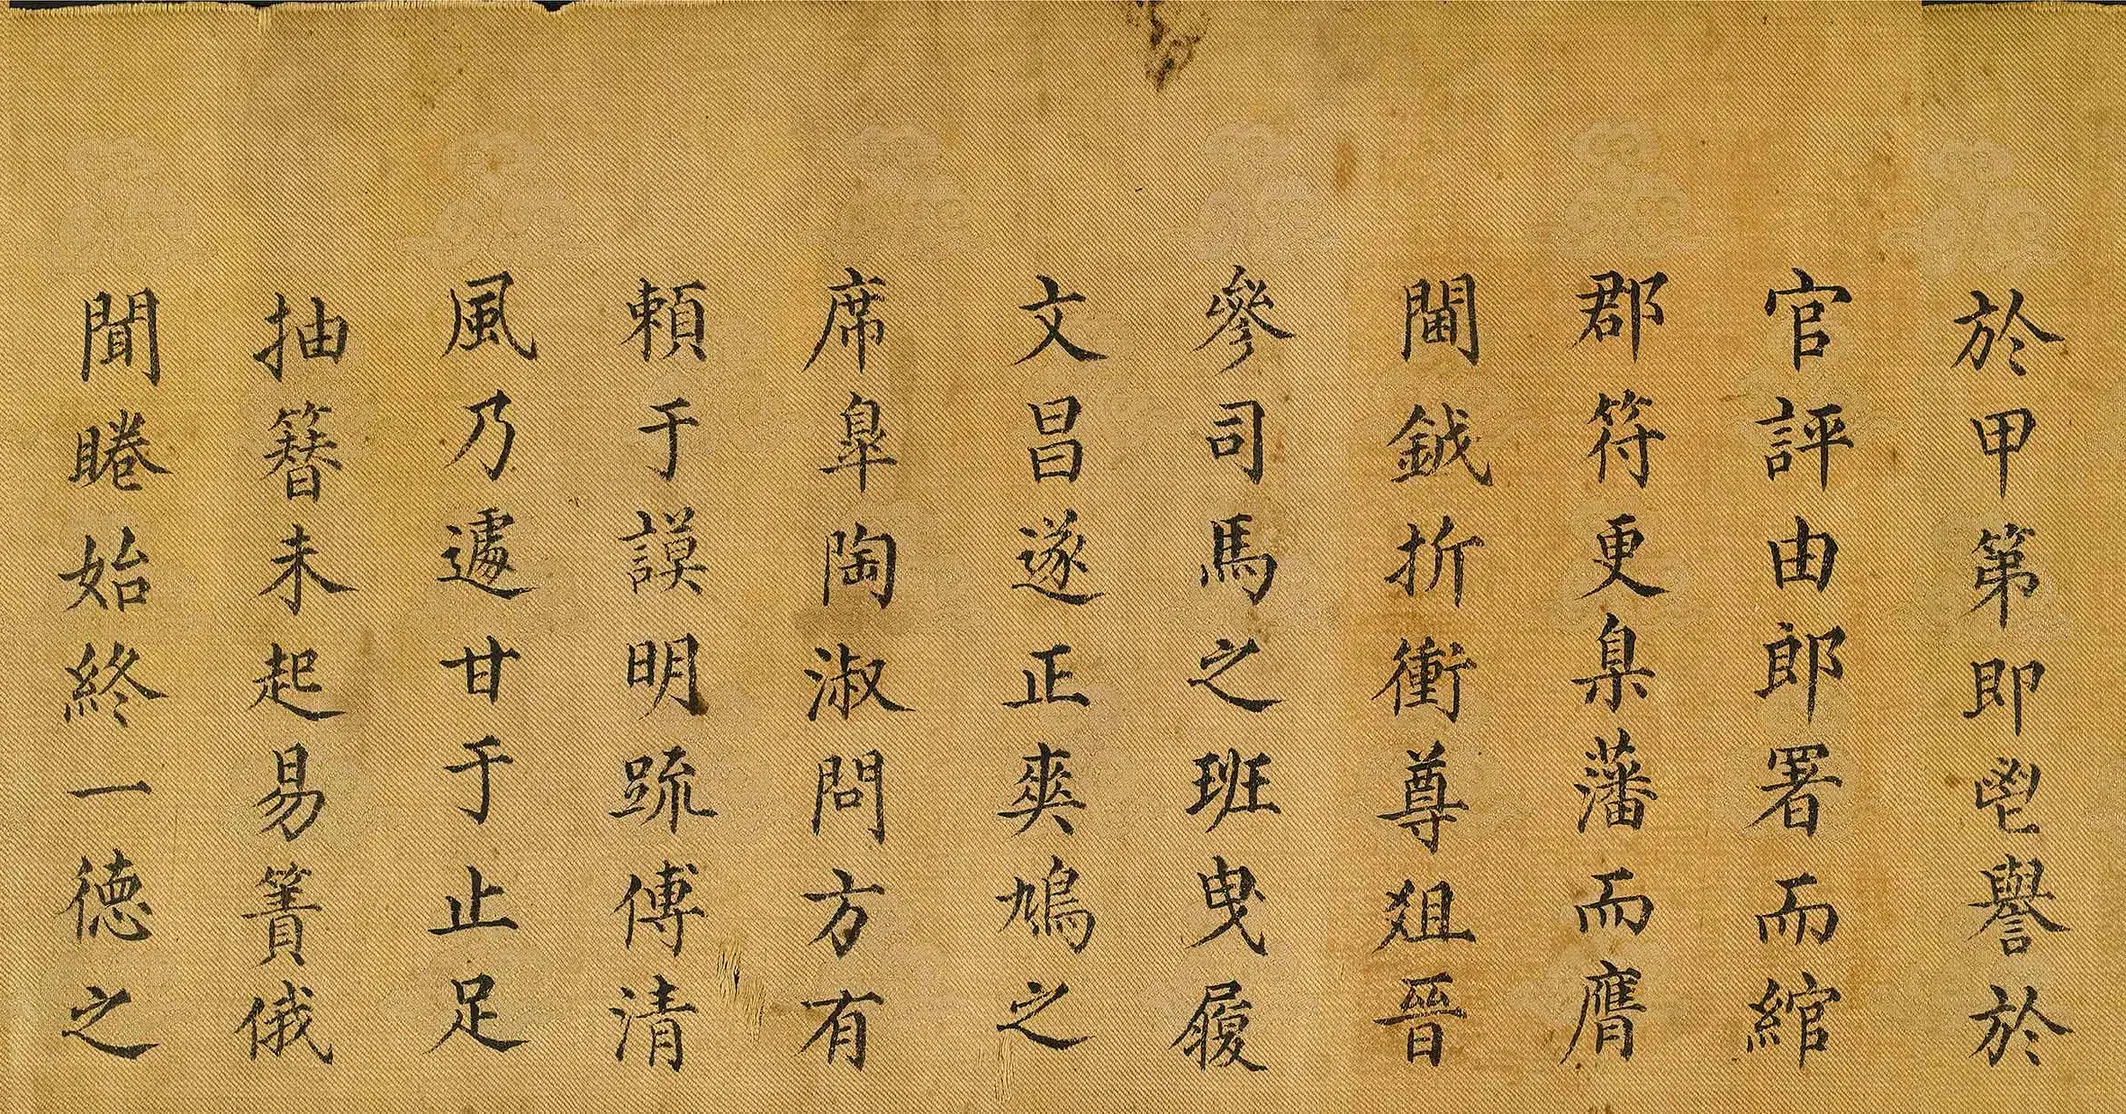 於甲第即鬯譽於
官評由郎署而綰
郡符更臬藩而膺
閫鉞折衝尊俎晉
參司馬之班曳履
文昌遂正爽鳩之
席皐陶淑問方有
頼于謨明䟽傅清
風乃遽甘于止足
抽簪未起易簀俄
聞睠始終一德之